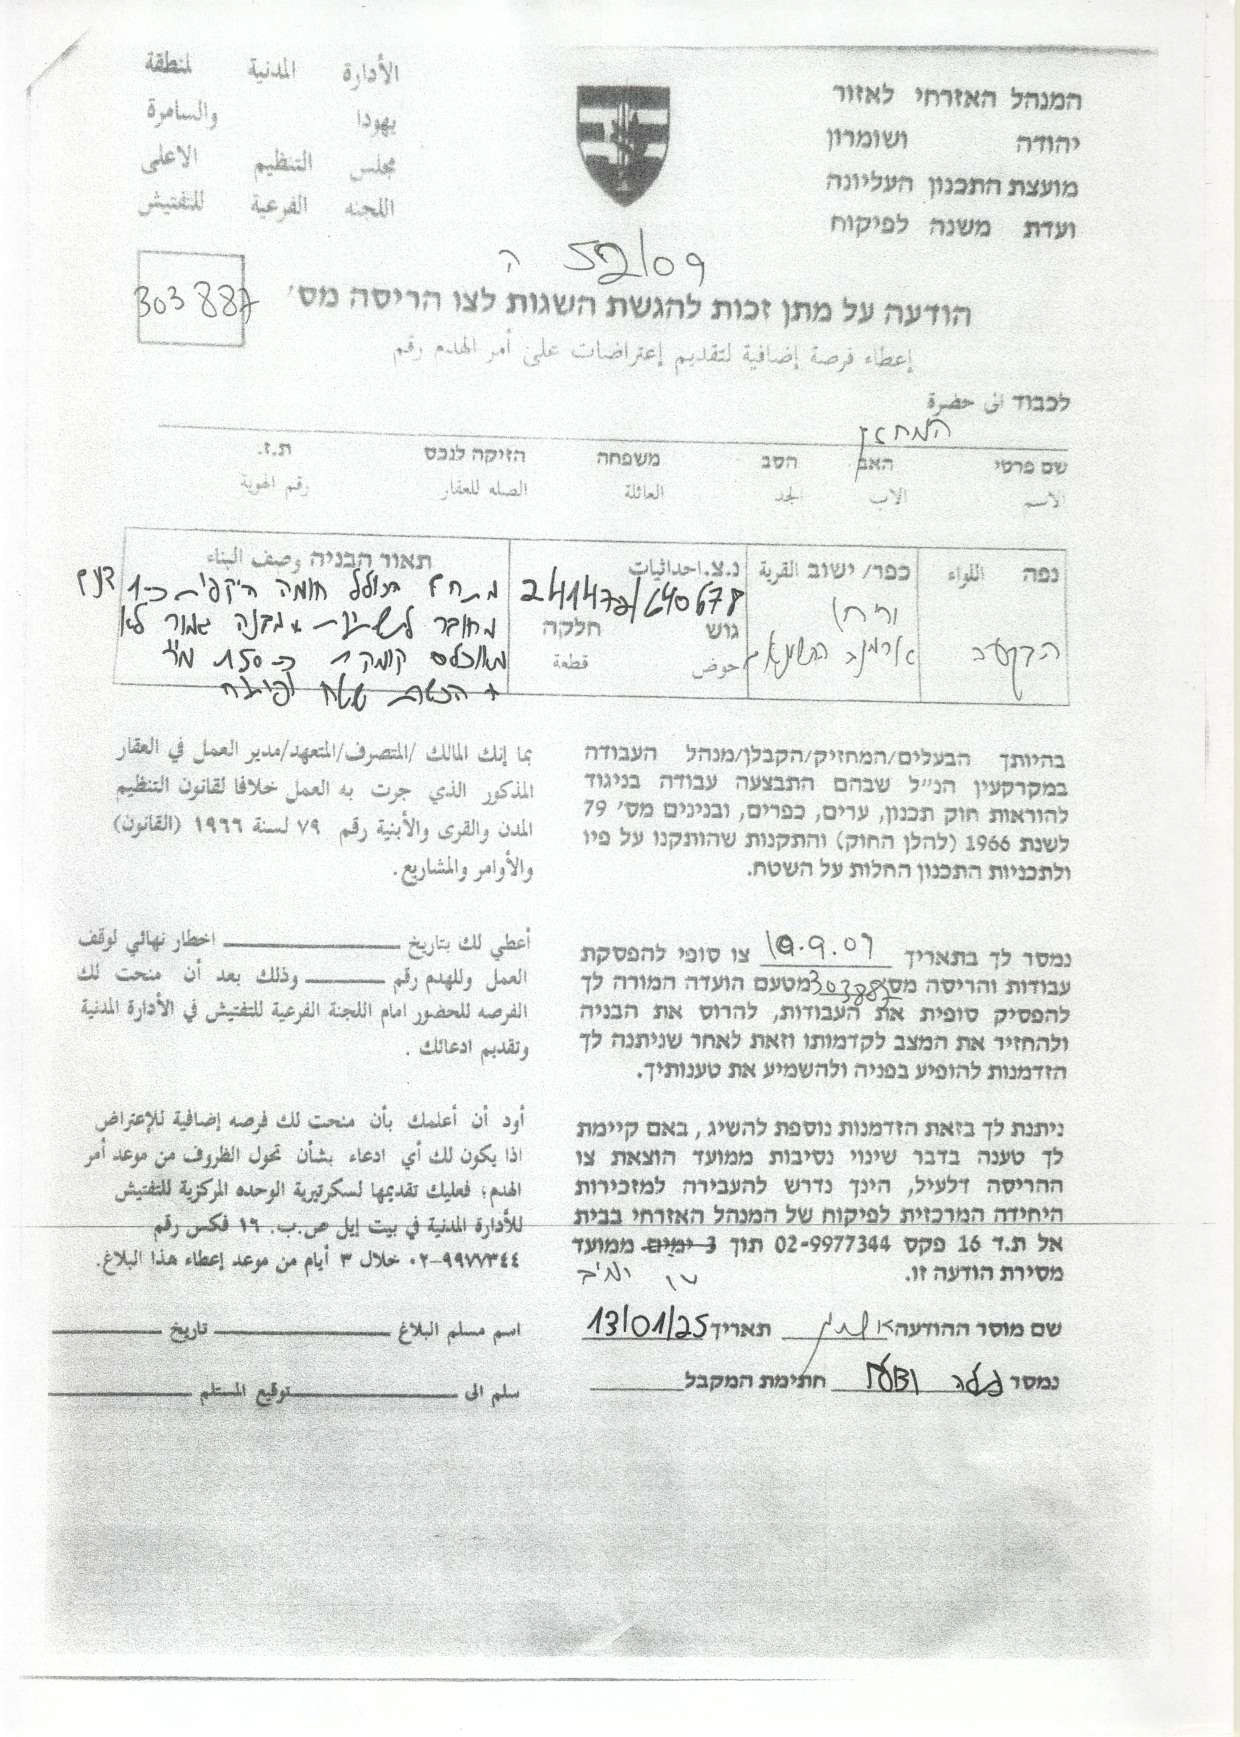 המנהל האזרחי לאזור
יהודה ושומרון
מועצת התכנון העליונה
ועדת משנה לפיקוח
الأدارة المدنية لمنطقة
يهودا والسامرة
مجلس التنظيم الاعلى
اللجنه الفرعية للتفتيش
ה 52/09
הודעה על מתן זכות להגשת השגות לצו הריסה מס׳
303887
إعطاء فرصة إضافية لتقديم إعتراضات على أمر الهدم رقم
לכבוד الى حضرة
המחזיק
שם פרטי האב הסב משפחה הזיקה לנכס ת.ז.
الاسم الاب الجد العائلة الصله للعقار رقم الهوية
נפה اللواء
הבקעה
כפר/ ישוב القرية
יריחו
נ.צ. احداثيات
640678
גוש חלקה
حوض قطعة
תאור הבניה وصف البناء
מתחם הכולל חומה היקפית כ-1 דונם
מחובר לתשתיות מבנה גמור לא
מאוכלס קומה 1 כ-150 מ״ר
+ הכשרת שטח
בהיותך הבעלים/המחזיק/הקבלן/מנהל העבודה
במקרקעין הנ״ל שבהם התבצעה עבודה בניגוד
להוראות חוק תכנון, ערים, כפרים, ובנינים מס׳ 79
לשנת 1966 (להלן החוק) והתקנות שהותקנו על פיו
ולתכניות התכנון החלות על השטח.
بما إنك المالك /المتصرف/المتعهد/مدير العمل في العقار
المذكور الذي جرت به العمل خلافا لقانون التنظيم
المدن والقرى والأبنية رقم ٧٩ لسنة ١٩٦٦ (القانون)
والأوامر والمشاريع.
נמסר לך בתאריך 10.9.07 צו סופי להפסקת
עבודות והריסה מס 303887 מטעם הועדה המורה לך
להפסיק סופית את העבודות, להרוס את הבניה
ולהחזיר את המצב לקדמותו וזאת לאחר שניתנה לך
הזדמנות להופיע בפניה ולהשמיע את טענותיך.
أعطي لك بتاريخ اخطار نهائي لوقف
العمل وللهدم رقم وذلك بعد أن منحت لك
الفرصه للحضور امام اللجنة الفرعية للتفتيش في الأدارة المدنية
وتقديم ادعائك .
ניתנת לך בזאת הזדמנות נוספת להשיג , באם קיימת
לך טענה בדבר שינוי נסיבות ממועד הוצאת צו
ההריסה דלעיל, הינך נדרש להעבירה למזכירות
היחידה המרכזית לפיקוח של המנהל האזרחי בבית
אל ת.ד 16 פקס 02-9977344 תוך 3 ימים ממועד
מסירת הודעה זו.
ימים
أود أن أعلمك بأن منحت لك فرصه إضافية للإعتراض
اذا يكون لك أي ادعاء بشأن تحول الظروف من موعد أمر
الهدم؛ فعليك تقديمها لسكرتيرية الوحده المركزية للتفتيش
للأدارة المدنية في بيت إيل ص.ب. ١٦ فكس رقم
٠٢-٩٩٧٧٣٤٤ خلال ٣ أيام من موعد إعطاء هذا البلاغ.
שם מוסר ההודעה תאריך 13/01/25
נמסר חתימת המקבל
اسم مسلم البلاغ تاريخ
سلم الى توقيع المستلم